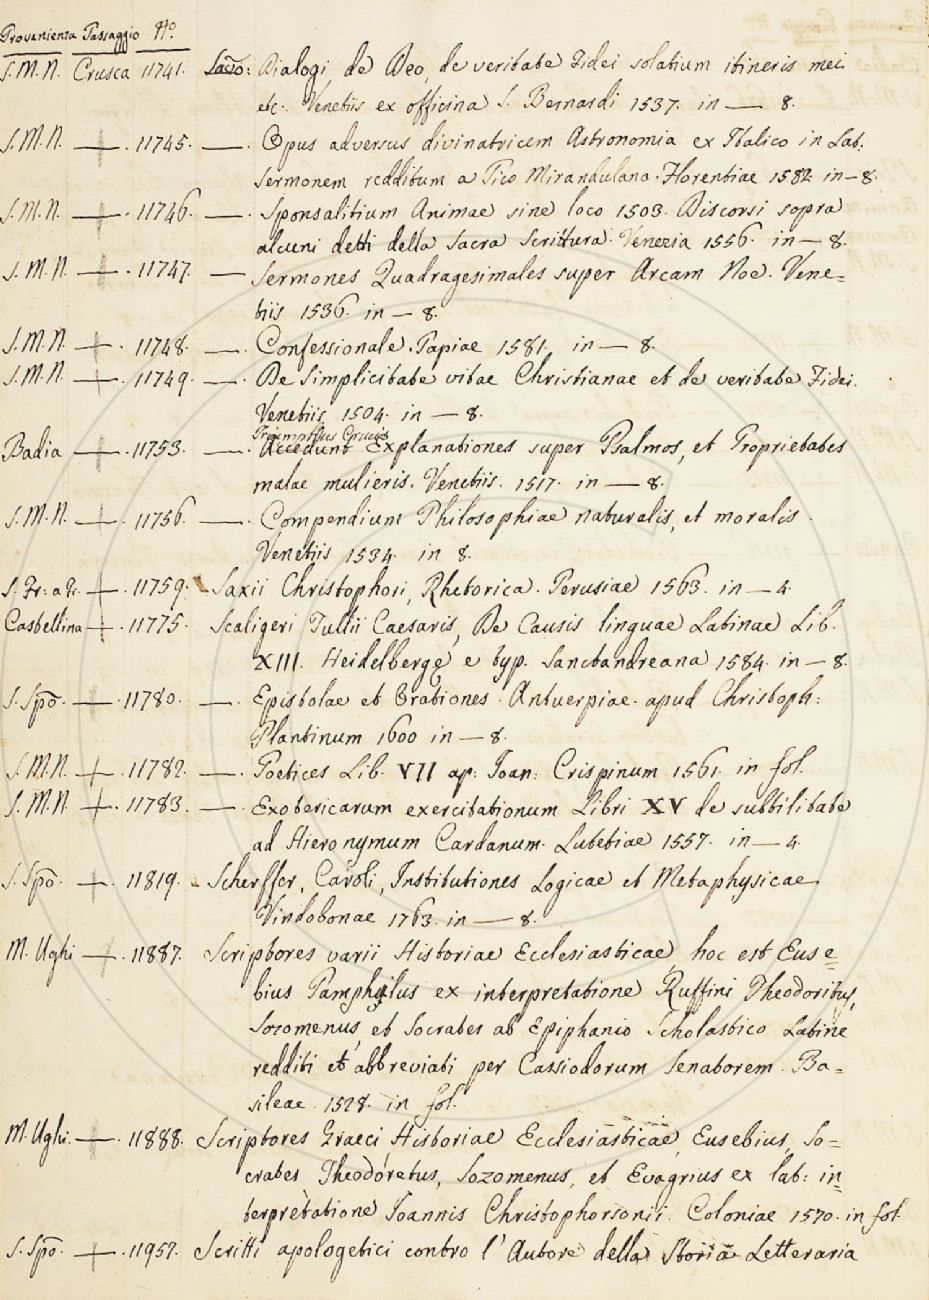 Provenienza Passaggio No.
S.M.N. Crusca 11741. Savo: Dialogi de Deo, de veritate Fidei solatium itineris mei
etc. Venetiis ex officina S. Bernardi 1537. in — 8.
S.M.N. — . 11745. — . Opus adversus divinatricem Astronomia ex Italico in Lat.
sermonem redditum a Pico Mirandulano. Florentiae 1582. in — 8.
S.M.N. — . 11746. — . Sponsalitium Animae sine loco 1503. Discorsi sopra
alcuni detti della Sacra Scrittura. Venezia 1556. in — 8.
S.M.N. — . 11747. — Sermones Quadragesimales super Arcam Noe. Vene=
tiis 1536. in — 8.
S.M.N. — . 11748. — . Confessionale. Papiae 1581. in — 8.
S.M.N. — . 11749. — . De Simplicitate vitae Christianae et de veritate Fidei.
Venetiis 1504. in — 8.
Triumphus Crucis
Badia — . 11753. — . Accedunt Explanationes super Psalmos, et Proprietates
malae mulieris. Venetiis. 1517. in — 8.
S.M.N. — . 11756. — . Compendium Philosophiae naturalis, et moralis.
Venetiis 1534. in 8.
S. Fr: a Ri. — . 11759. Saxii Christophori, Rhetorica. Perusiae 1563. in — 4.
Castellina — . 11775. Scaligeri Tullii Caesaris, De Causis linguae Latinae Lib.
XIII. Heidelbergę e typ. Sanctandreana 1584. in — 8.
S. Spo. — . 11780. — . Epistolae et Orationes. Antuerpiae. apud Christoph:
Plantinum 1600 in — 8.
S.M.N. — . 11782. — . Poetices Lib. VII ap: Joan: Crispinum 1561. in fol.
S.M.N. — . 11783. — . Exotericarum exercitationum Libri XV de subtilitate
ad Hieronymum Cardanum. Lutetiae 1557. in — 4.
S. Spo. — . 11819. Scherffer, Caroli, Institutiones Logicae et Metaphysicae.
Vindobonae 1763. in — 8.
M. Ughi — . 11887. Scriptores varii Historiae Ecclesiasticae hoc est Euse=
bius Pamphylus ex interpretatione Ruffini Theodoritus,
Sozomenus et Socrates ab Epiphanio Scholastico Latine
redditi et abbreviati per Cassiodorum Senatorem. Ba=
sileae. 1528. in fol.
M. Ughi. — . 11888. Scriptores Graeci Historiae Ecclesiasticae, Eusebius, So=
crates Theodoretus, Sozomenus, et Evagrius ex lat: in=
terpretatione Joannis Christophorsonii. Coloniae 1570. in fol.
S. Spo. — . 11957. Scritti apologetici contro l'Autore della Storia Letteraria